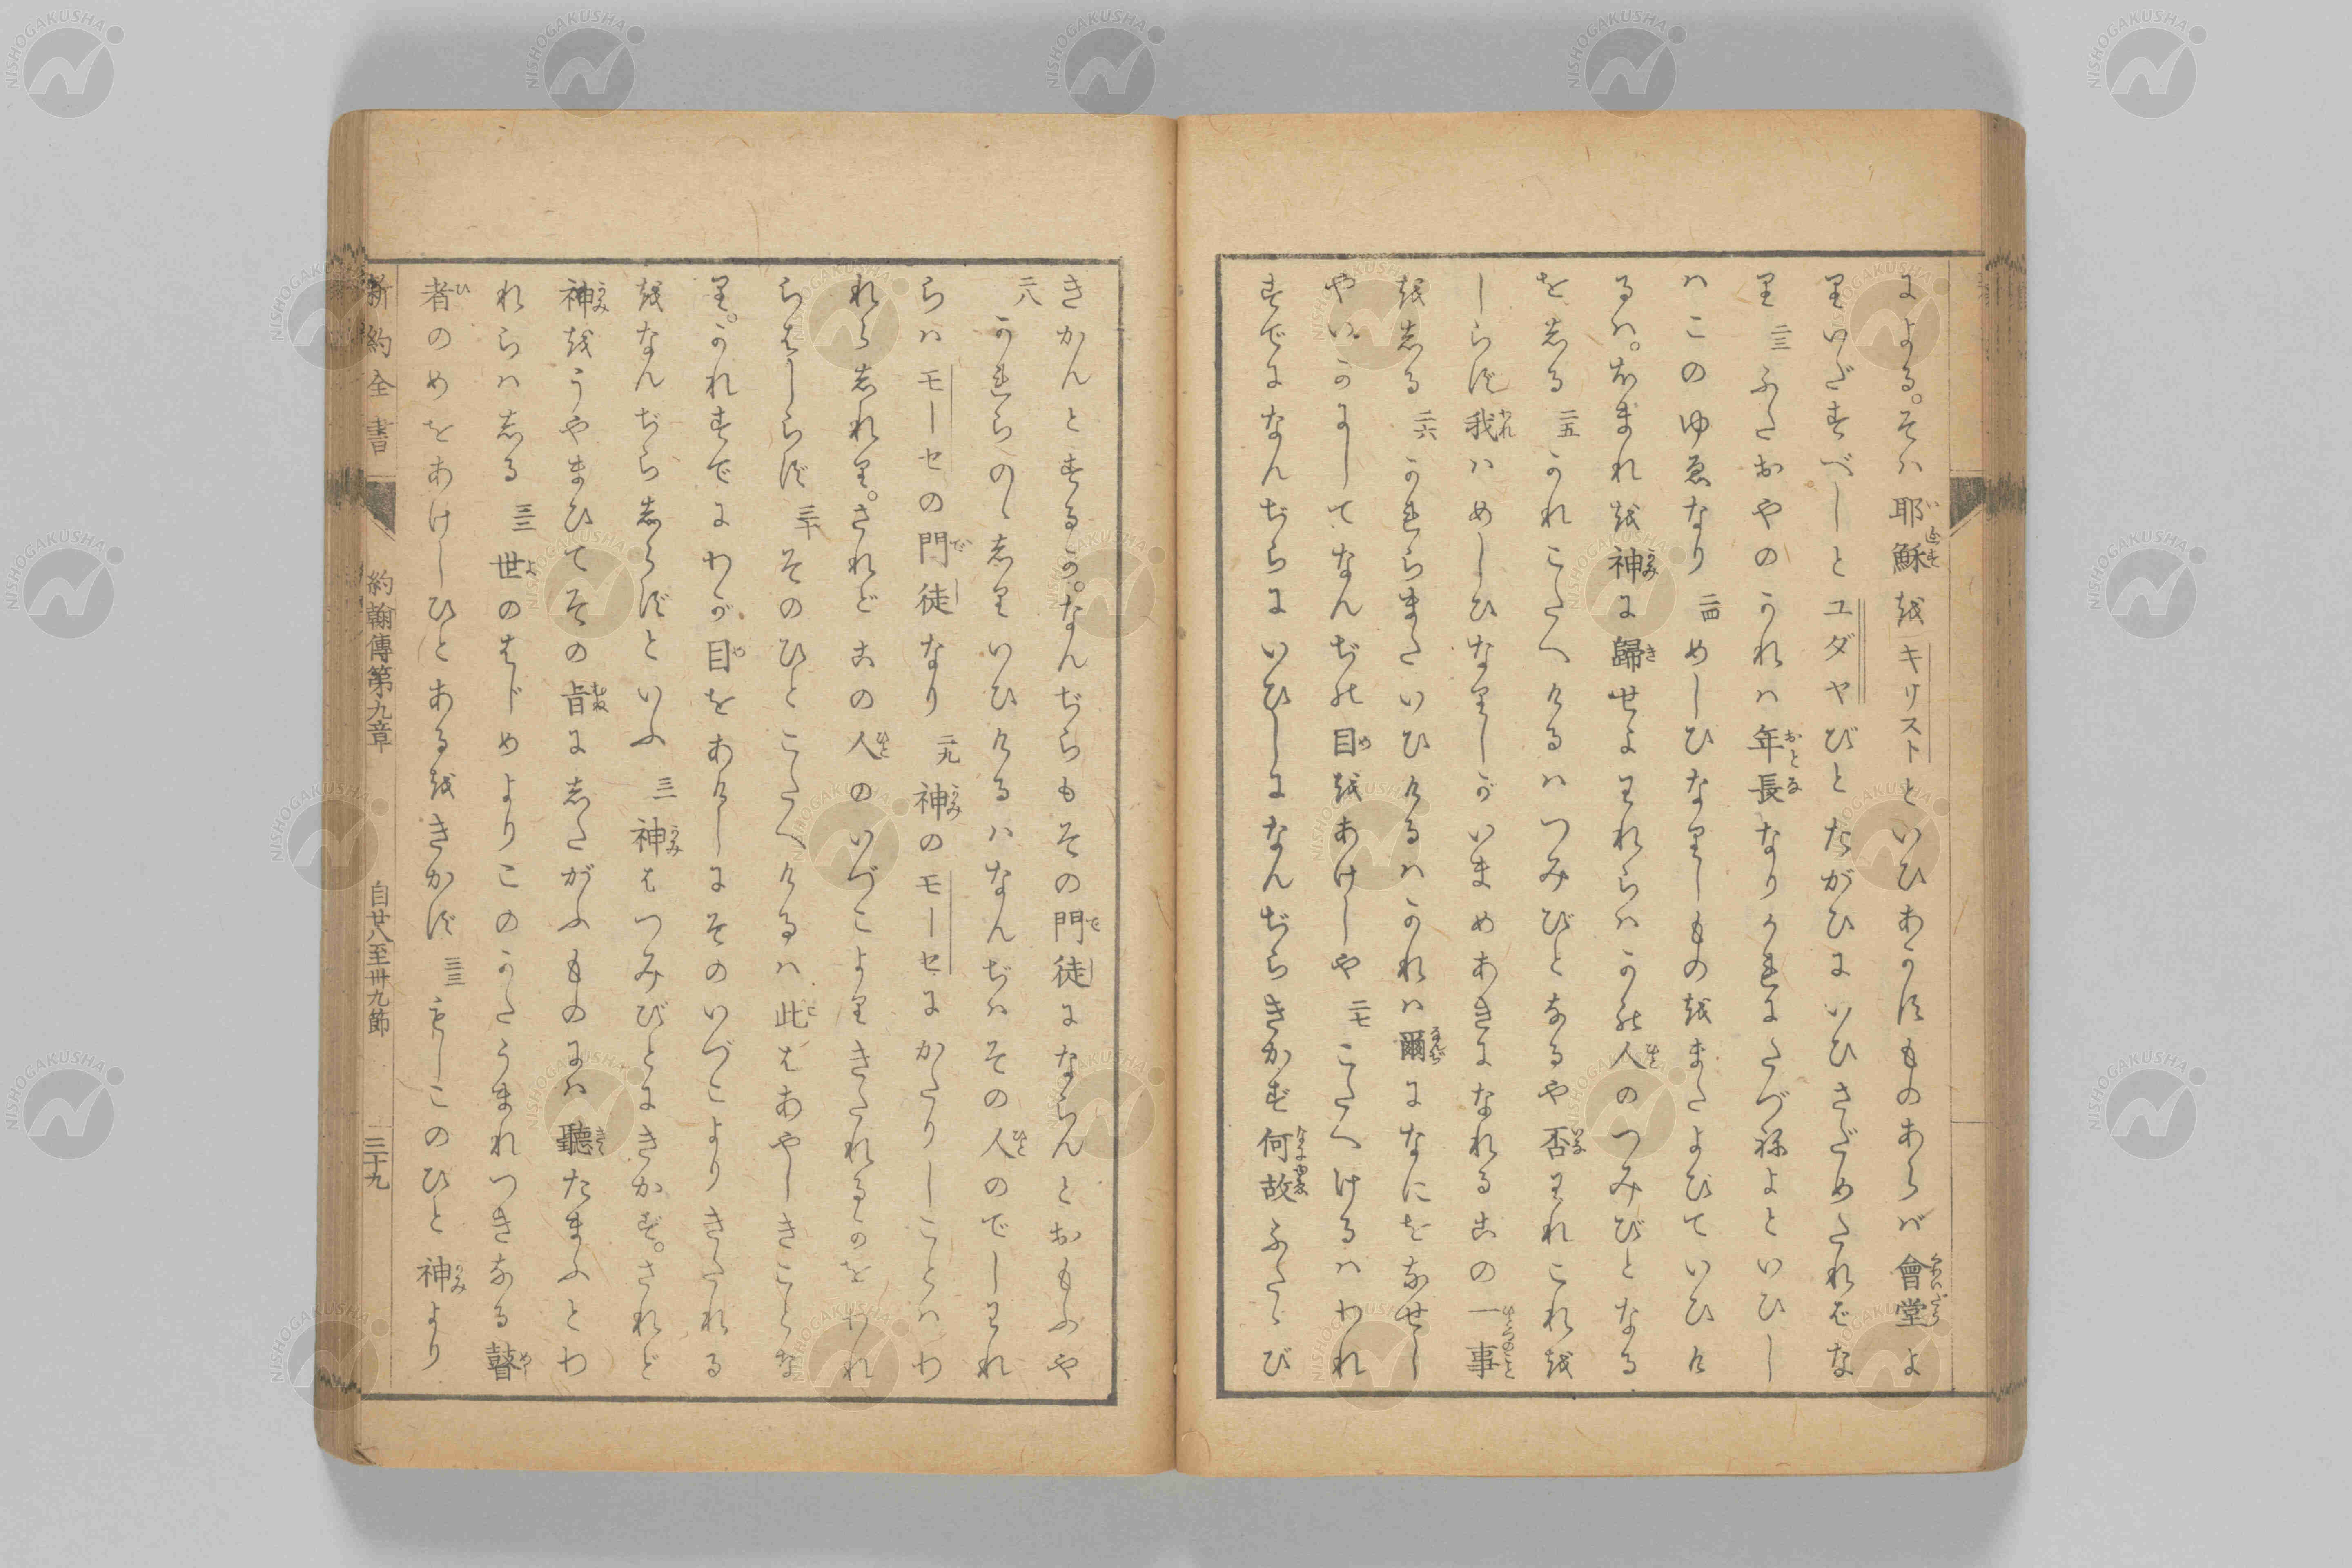 による。そハ耶穌をキリストといひあらはすものあらバ會堂よ
りいだすべしとユダヤびとたがひにいひさだめたればな
り 二三 ふたおやのかれハ年長なりかれにたづねよといひし
ハこのゆゑなり 二四 めしひなりしものをまたよびていひけ
るハ。あまれを神に歸せよわれらハかの人のつみびとなる
をしる 二五 かれこたへけるハつみびとなるや否われこれを
しらず我ハめしひなりしがいまめあきになれるこの一事
をしる 二六 かれらまたいひけるハかれハ爾になにをなせし
やいかにしてなんぢの目をあけしや 二七 こたへけるハわれ
すでになんぢらにいひしになんぢらきかず何故ふたゝび
きかんとするか。なんぢらもその門徒にならんとおもふや
二八 かれらのゝしりいひけるハなんぢハその人のでしわれ
らハモーセの門徒なり 二九 神のモーセにかたりしことハわ
れらしれり。されどこの人のいづこよりきたれるかをわれ
らはしらず 三十 そのひとこたへけるハ此はあやしきことな
り。かれすでにわが目をあけしにそのいづこよりきたれる
をなんぢらしらずといふ 三一 神はつみびとにきかず。されど
神をうやまひてその旨にしたがふものにハ聽たまふとわ
れらハしる 三二 世のはじめよりこのかたうまれつきなる瞽
者のめをあけしひとあるをきかず 三三 もしこのひと神より
新約全書 約翰傳第九章 自廿八至卅九節 三十九